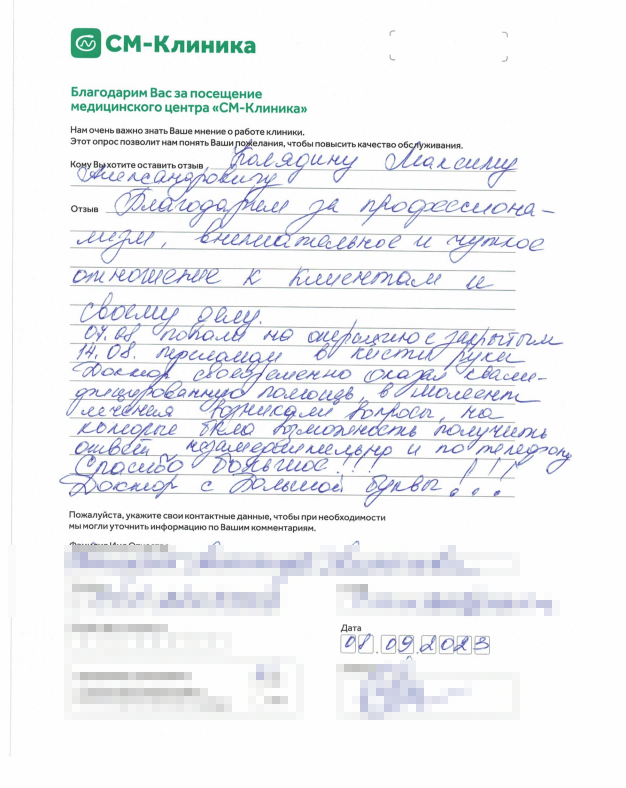 СМ-Клиника
Благодарим Вас за посещение
медицинского центра «СМ-Клиника»
Нам очень важно знать Ваше мнение о работе клиники.
Этот опрос позволит нам понять Ваши пожелания, чтобы повысить качество обслуживания.
Кому Вы хотите оставить отзыв Колядину Максиму
Александровичу
Отзыв Благодарим за профессиона-
лизм, внимательное и чуткое
отношение к клиентам и
своему делу.
04.08 попали на операцию с закрытым
14.08. переломом в кисти руки
Доктор своевременно оказал квали-
фицированную помощь, в момент
лечения возникали вопросы, на
которые была возможность получить
ответ незамедлительно и по телефону
Спасибо большое!!! !!!
Доктор с Большой буквы!...
Пожалуйста, укажите свои контактные данные, чтобы при необходимости
мы могли уточнить информацию по Вашим комментариям.
Дата
08.09.2023